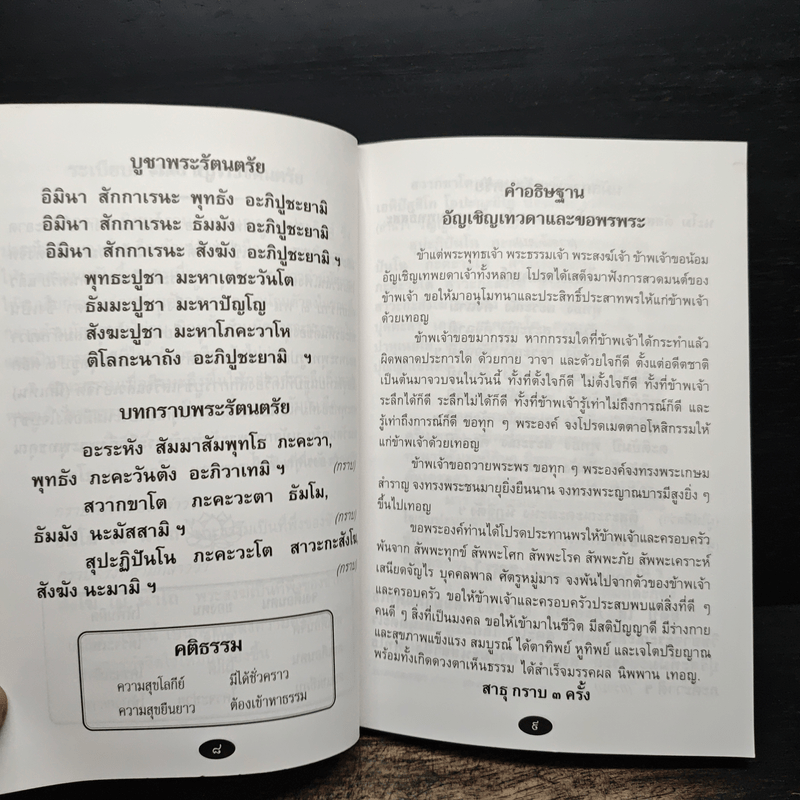 บูชาพระรัตนตรัย
อิมินา สักกาเรนะ พุทธัง อะภิปูชะยามิ
อิมินา สักกาเรนะ ธัมมัง อะภิปูชะยามิ
อิมินา สักกาเรนะ สังฆัง อะภิปูชะยามิ ฯ
พุทธะปูชา มะหาเตชะวันโต
ธัมมะปูชา มะหาปัญโญ
สังฆะปูชา มะหาโภคะวาโห
ติโลกะนาถัง อะภิปูชะยามิ ฯ
บทกราบพระรัตนตรัย
อะระหัง สัมมาสัมพุทโธ ภะคะวา,
พุทธัง ภะคะวันตัง อะภิวาเทมิ ฯ (กราบ)
สวากขาโต ภะคะวะตา ธัมโม,
ธัมมัง นะมัสสามิ ฯ (กราบ)
สุปะฏิปันโน ภะคะวะโต สาวะกะสังโฆ
สังฆัง นะมามิ ฯ (กราบ)
คติธรรม
ความสุขโลกีย์ มีได้ชั่วคราว
ความสุขยืนยาว ต้องเข้าหาธรรม
๘
คำอธิษฐาน
อัญเชิญเทวดาและขอพรพระ
ข้าแต่พระพุทธเจ้า พระธรรมเจ้า พระสงฆ์เจ้า ข้าพเจ้าขอน้อม
อัญเชิญเทพยดาเจ้าทั้งหลาย โปรดได้เสด็จมาฟังการสวดมนต์ของ
ข้าพเจ้า ขอให้มาอนุโมทนาและประสิทธิ์ประสาทพรให้แก่ข้าพเจ้า
ด้วยเทอญ
ข้าพเจ้าขอขมากรรม หากกรรมใดที่ข้าพเจ้าได้กระทำแล้ว
ผิดพลาดประการใด ด้วยกาย วาจา และด้วยใจก็ดี ตั้งแต่อดีตชาติ
เป็นต้นมาจวบจนในวันนี้ ทั้งที่ตั้งใจก็ดี ไม่ตั้งใจก็ดี ทั้งที่ข้าพเจ้า
ระลึกได้ก็ดี ระลึกไม่ได้ก็ดี ทั้งที่ข้าพเจ้ารู้เท่าไม่ถึงการณ์ก็ดี และ
รู้เท่าถึงการณ์ก็ดี ขอทุก ๆ พระองค์ จงโปรดเมตตาอโหสิกรรมให้
แก่ข้าพเจ้าด้วยเทอญ
ข้าพเจ้าขอถวายพระพร ขอทุก ๆ พระองค์จงทรงพระเกษม
สำราญ จงทรงพระชนมายุยิ่งยืนนาน จงทรงพระญาณบารมีสูงยิ่ง ๆ
ขึ้นไปเทอญ
ขอพระองค์ท่านได้โปรดประทานพรให้ข้าพเจ้าและครอบครัว
พ้นจาก สัพพะทุกข์ สัพพะโศก สัพพะโรค สัพพะภัย สัพพะเคราะห์
เสนียดจัญไร บุคคลพาล ศัตรูหมู่มาร จงพ้นไปจากตัวของข้าพเจ้า
และครอบครัว ขอให้ข้าพเจ้าและครอบครัวประสบพบแต่สิ่งที่ดี ๆ
คนดี ๆ สิ่งที่เป็นมงคล ขอให้เข้ามาในชีวิต มีสติปัญญาดี มีร่างกาย
และสุขภาพแข็งแรง สมบูรณ์ ได้ตาทิพย์ หูทิพย์ และเจโตปริยญาณ
พร้อมทั้งเกิดดวงตาเห็นธรรม ได้สำเร็จมรรคผล นิพพาน เทอญ.
สาธุ กราบ ๓ ครั้ง
๙